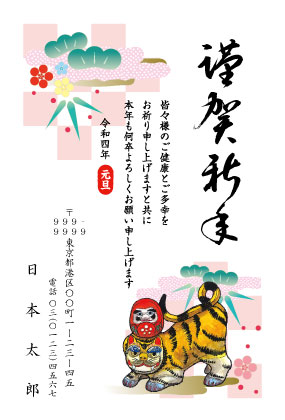 謹賀新年
皆々様のご健康とご多幸を
お祈り申し上げますと共に
本年も何卒よろしくお願い申し上げます
令和四年 元旦
〒999-9999
東京都港区〇〇町一ー二三ー四五
電話 〇三(〇一二三)四五六七
日本太郎